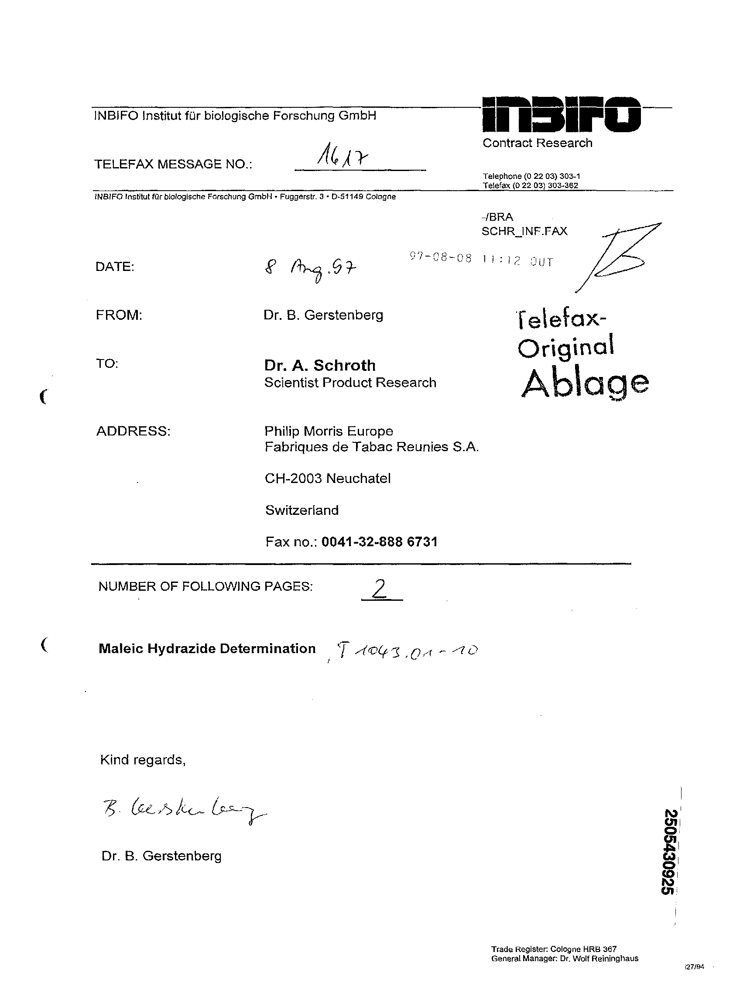 INBIFO Institut für biologische Forschung GmbH
INBIFO
Contract Research
TELEFAX MESSAGE NO.: 1617
Telephone (0 22 03) 303-1
Telefax (0 22 03) 303-362
INBIFO Institut für biologische Forschung GmbH • Fuggerstr. 3 • D-51149 Cologne
-/BRA
SCHR_INF.FAX
97-08-08 11:12 OUT
DATE: 8 Aug. 97
FROM: Dr. B. Gerstenberg
Telefax-
Original
Ablage
TO: Dr. A. Schroth
Scientist Product Research
ADDRESS: Philip Morris Europe
Fabriques de Tabac Reunies S.A.
CH-2003 Neuchatel
Switzerland
Fax no.: 0041-32-888 6731
NUMBER OF FOLLOWING PAGES: 2
Maleic Hydrazide Determination , T 1043.01-10
Kind regards,
B. Gerstenberg
Dr. B. Gerstenberg
2505430925
Trade Register: Cologne HRB 367
General Manager: Dr. Wolf Reininghaus
/27/94